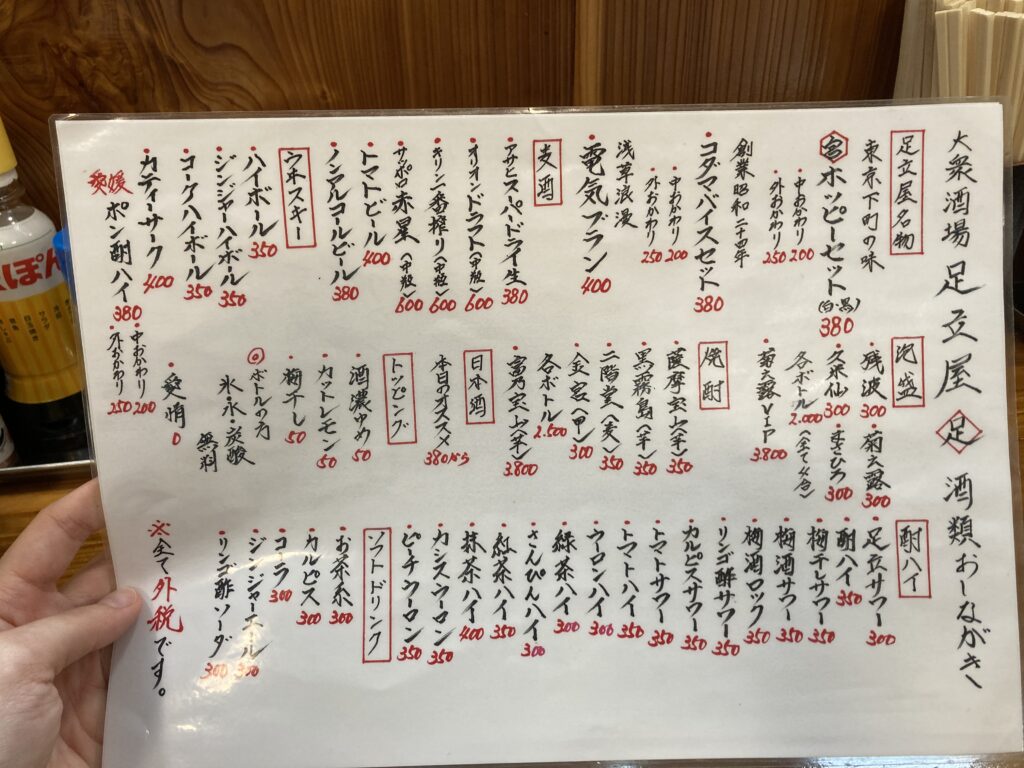 大衆酒場 足立屋 足 酒類おしながき
足立屋名物
東京下町の味
ホッピーセット(白・黒) 380
・中おかわり 200
・外おかわり 250
創業昭和二十四年
・コダマバイスセット 380
・中おかわり 200
・外おかわり 250
浅草浪漫
・電気ブラン 400
麦酒
・アサヒスーパードライ生 380
・オリオンドラフト(中瓶) 600
・キリン一番搾り(中瓶) 600
・サッポロ赤星(中瓶) 600
・トマトビール 400
・ノンアルコールビール 380
ウヰスキー
・ハイボール 350
・ジンジャーハイボール 350
・コークハイボール 350
・カティーサーク 400
愛媛 ポン酎ハイ 380
・中おかわり 200
・外おかわり 250
泡盛
・残波 300
・菊之露 300
・久米仙 300
・まさひろ 300
各ボトル 2.000
・菊之露VIP 3.800
焼酎
・薩摩宝山(芋) 350
・黒霧島(芋) 350
・二階堂(麦) 350
・(甲) 300
各ボトル 2.500
・富乃宝山(芋) 3.800
日本酒
本日のオススメ 380から
トッピング
・酒濃いめ 50
・カットレモン 50
・梅干し 50
◎ボトルの方
氷・水・炭酸
無料
・愛情 0
酎ハイ
・足立サワー 300
・酎ハイ 350
・梅干しサワー 350
・梅酒サワー 350
・梅酒ロック 350
・リンゴ酢サワー 350
・カルピスサワー 350
・トマトサワー 350
・トマトハイ 350
・ウーロンハイ 300
・緑茶ハイ 300
・さんぴん茶ハイ 300
・紅茶ハイ 350
・抹茶ハイ 400
・カシスウーロン 350
・ピーチウーロン 350
ソフトドリンク
・お茶系 300
・カルピス 300
・コーラ 300
・ジンジャーエール 300
・リンゴ酢ソーダ 300
※全て外税です。